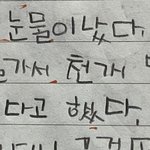 눈물이났다.
가서 천개
다고 했다.